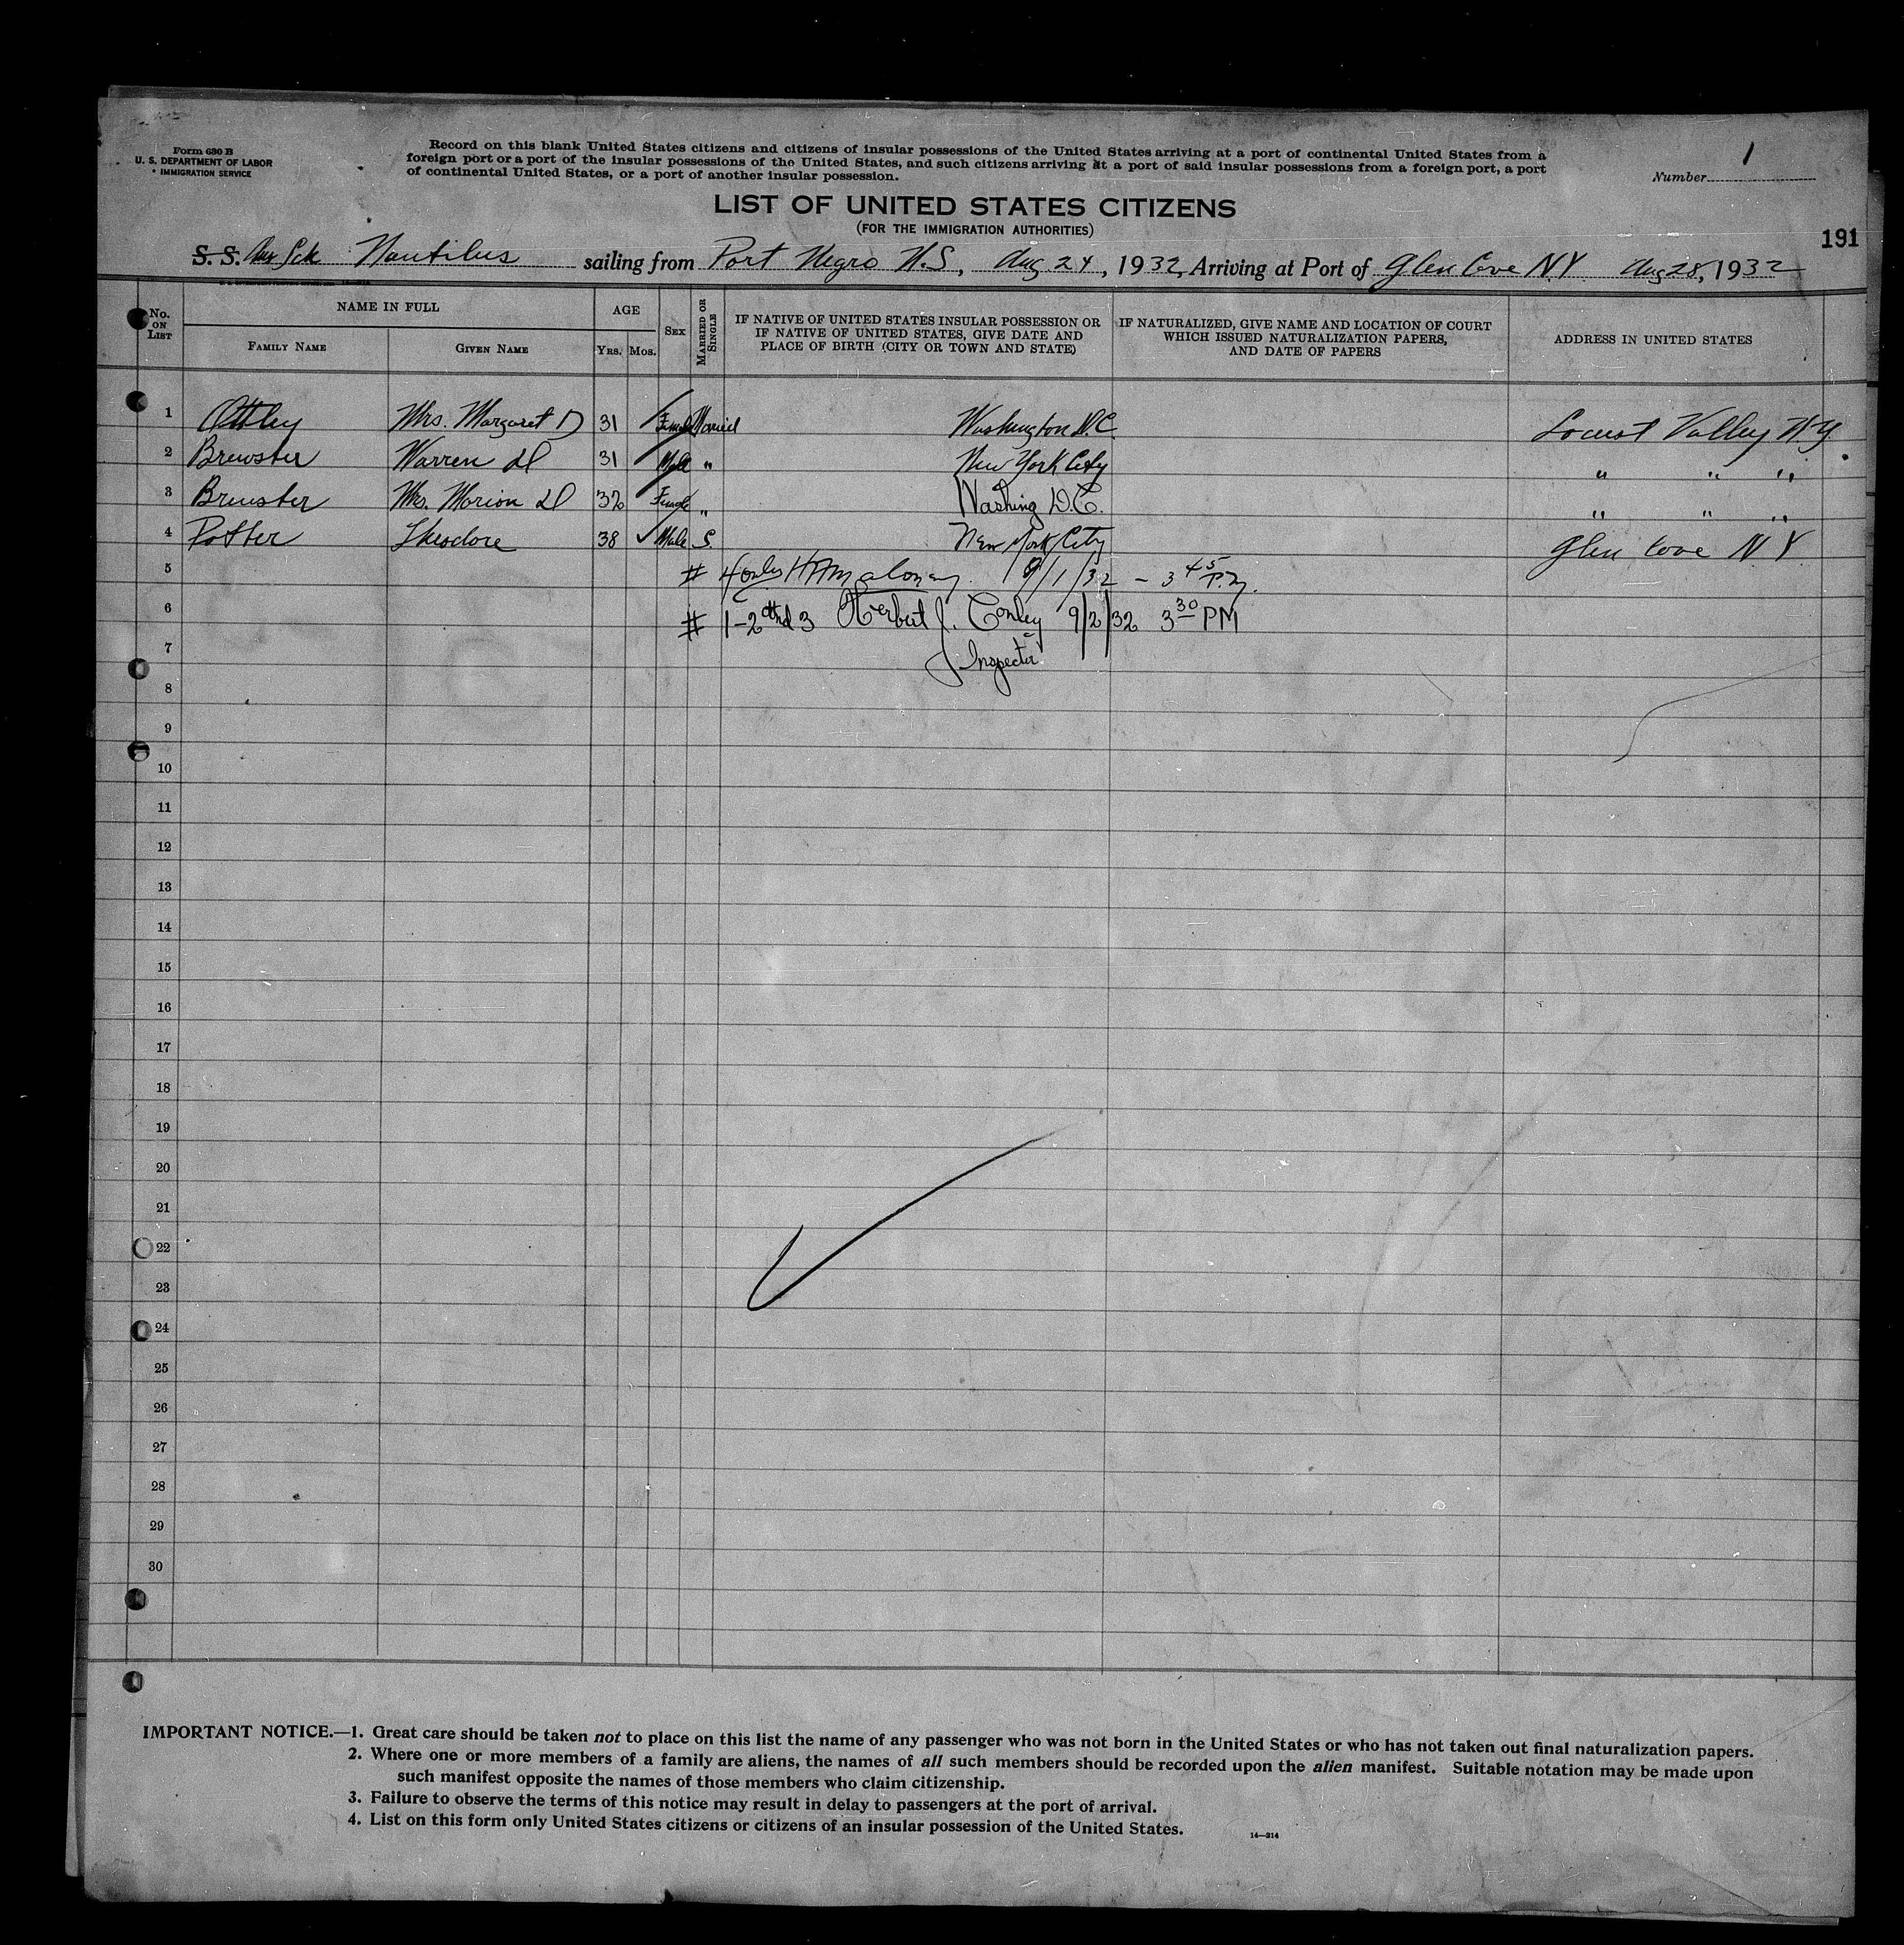 Form 630 B
U. S. DEPARTMENT OF LABOR
IMMIGRATION SERVICE
Record on this blank United States citizens and citizens of insular possessions of the United States arriving at a port of continental United States from a
foreign port or a port of the insular possessions of the United States, and such citizens arriving at a port of said insular possessions from a foreign port, a port
of continental United States, or a port of another insular possession.
Number 1
LIST OF UNITED STATES CITIZENS
(FOR THE IMMIGRATION AUTHORITIES)
191
S. S. Aux Sch Nautilus sailing from Port Negro N.S., Aug 24, 1932, Arriving at Port of Glen Cove N.Y. Aug 28, 1932
No. ON LIST
NAME IN FULL
FAMILY NAME
GIVEN NAME
AGE
YRS. MOS.
SEX
MARRIED OR SINGLE
IF NATIVE OF UNITED STATES INSULAR POSSESSION OR
IF NATIVE OF UNITED STATES, GIVE DATE AND
PLACE OF BIRTH (CITY OR TOWN AND STATE)
IF NATURALIZED, GIVE NAME AND LOCATION OF COURT
WHICH ISSUED NATURALIZATION PAPERS,
AND DATE OF PAPERS
ADDRESS IN UNITED STATES
1 Ottley Mrs. Margaret D 31 Female Married Washington D.C. Locust Valley N.Y.
2 Brewster Warren D 31 Male " New York City " " "
3 Brewster Mrs. Marion D 32 Female " Washing D.C. " " "
4 Potter Theodore 38 Male S. New York City Glen Cove N Y
5 # 4 only H A Maloney 9/1/32 - 3 45 P.M.
6 # 1-2 and 3 Herbert J. Conley 9/2/32 3 30 PM
7 Inspector
8
9
10
11
12
13
14
15
16
17
18
19
20
21
22
23
24
25
26
27
28
29
30
IMPORTANT NOTICE.—1. Great care should be taken not to place on this list the name of any passenger who was not born in the United States or who has not taken out final naturalization papers.
2. Where one or more members of a family are aliens, the names of all such members should be recorded upon the alien manifest. Suitable notation may be made upon
such manifest opposite the names of those members who claim citizenship.
3. Failure to observe the terms of this notice may result in delay to passengers at the port of arrival.
4. List on this form only United States citizens or citizens of an insular possession of the United States.
14—214